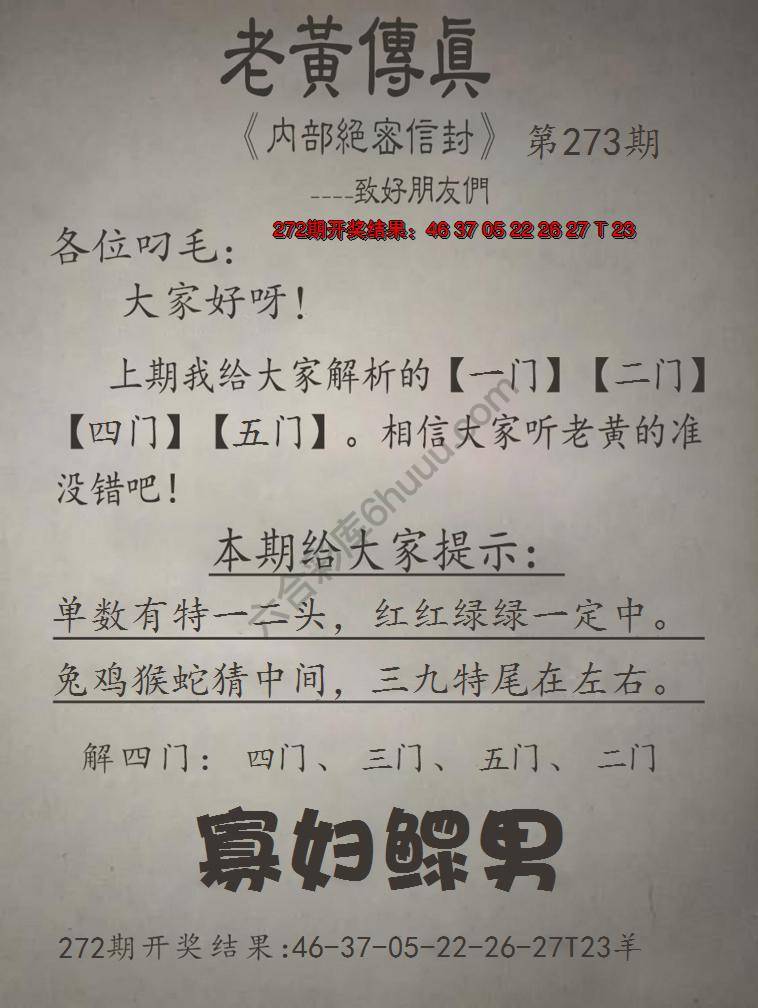 老黃傳眞
《内部絕密信封》 第273期
----致好朋友們
272期开奖结果：46 37 05 22 26 27 T 23
各位叼毛：
大家好呀！
上期我给大家解析的【一门】【二门】
【四门】【五门】。相信大家听老黄的准
没错吧！
本期给大家提示：
单数有特一二头，红红绿绿一定中。
兔鸡猴蛇猜中间，三九特尾在左右。
解四门： 四门、 三门、 五门、 二门
寡妇鳏男
272期开奖结果:46-37-05-22-26-27T23羊
六合彩库6huuu.com